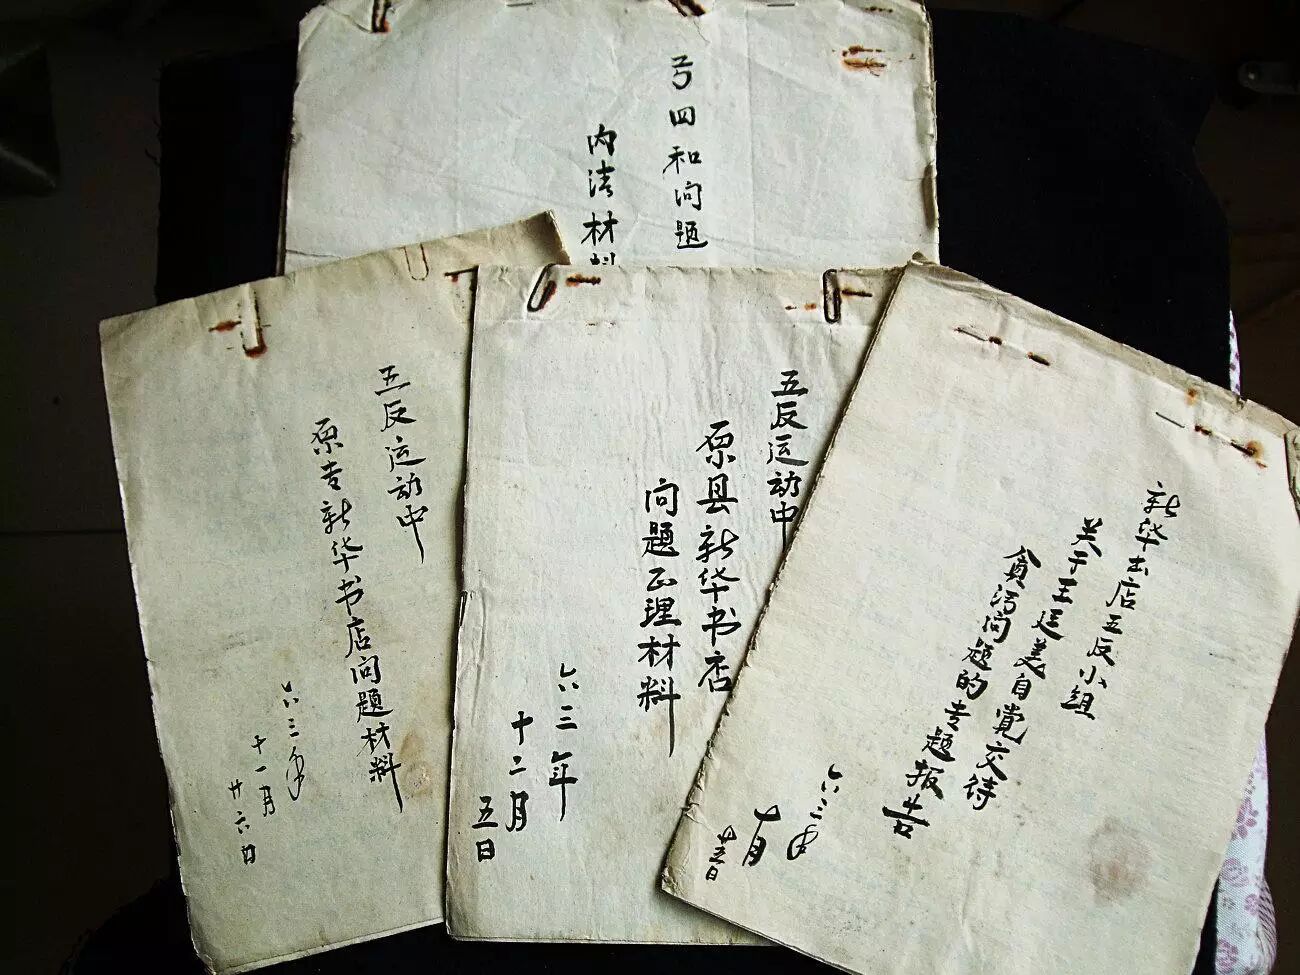 弓四和问题
内清材料
五反运动中
原专新华书店问题材料
六三年
十一月
廿六日
五反运动中
原县新华书店
问题正理材料
六三年
十二月
五日
新华书店五反小组
关于王廷美自觉交待
貪污问题的专题报告
六三年
十月
廿五日